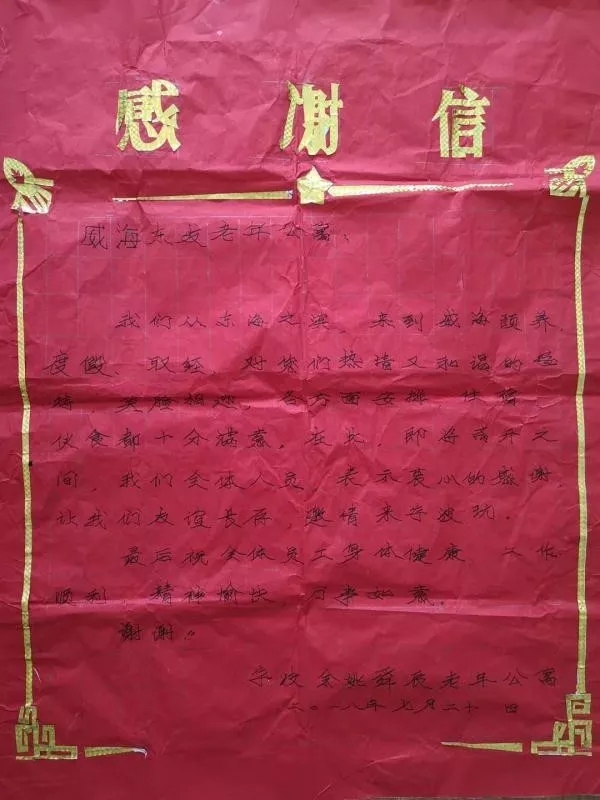 感谢信
威海东发老年公寓：
我们从东海之滨，来到威海颐养、
度假、取经，对您们热情又和谐的接
待，笑脸相迎，各方面安排，住宿
伙食都十分满意。在此，即将离开之
间，我们全体人员，表示衷心的感谢，
让我们友谊长存，邀请来宁波玩。
最后祝全体员工身体健康 工作
顺利，精神愉快，万事如意。
谢谢！
余姚舜辰老年公寓
二〇一八年七月二十日